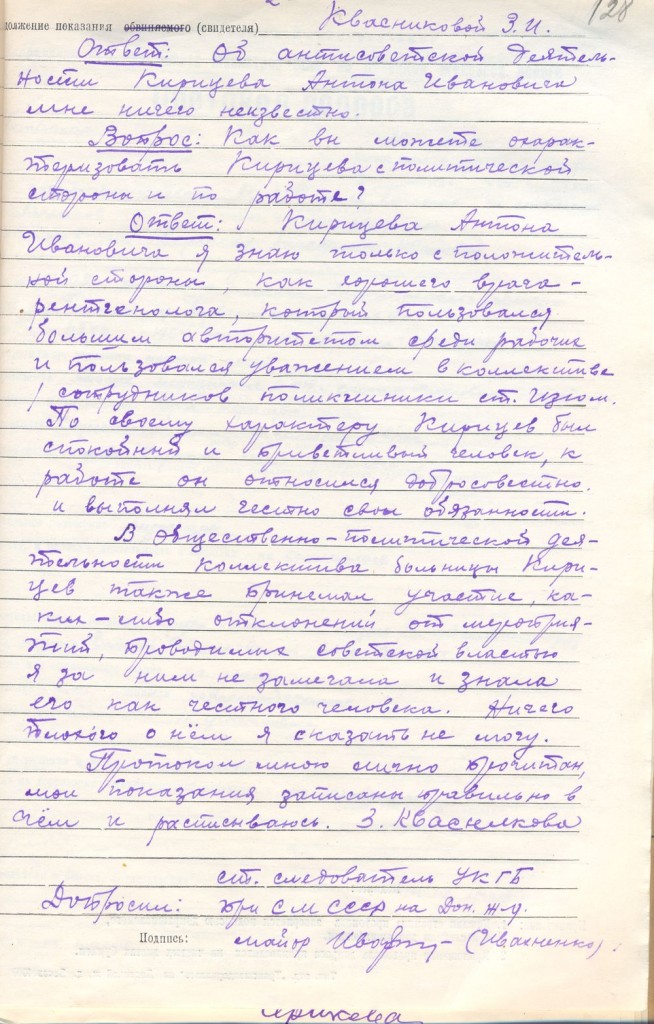 2
128
должение показания обвиняемого (свидетеля) Квасниковой З.И.
Ответ: Об антисоветской деятель-
ности Кирицева Антона Ивановича
мне ничего неизвестно.
Вопрос: Как вы можете охарак-
теризовать Кирицева с политической
стороны и по работе?
Ответ: Кирицева Антона
Ивановича я знаю только с положитель-
ной стороны, как хорошего врача-
рентгенолога, который пользовался
большим авторитетом среди рабочих
и пользовался уважением в коллективе
сотрудников поликлиники ст. Изюм.
По своему характеру Кирицев был
спокойный и приветливый человек, к
работе он относился добросовестно
и выполнял честно свои обязанности.
В общественно-политической дея-
тельности коллектива больницы Кири-
цев также принимал участие, ка-
ких-либо отклонений от мероприя-
тий, проводимых советской властью
я за ним не замечала и знала
его как честного человека. Ничего
плохого о нём я сказать не могу.
Протокол мною лично прочитан,
мои показания записаны правильно в
чём и расписываюсь. З. Квасникова
ст. следователь УКГБ
Допросил: при СМ СССР на Дон. ж.д.
Подпись: майор (Ивасненко).